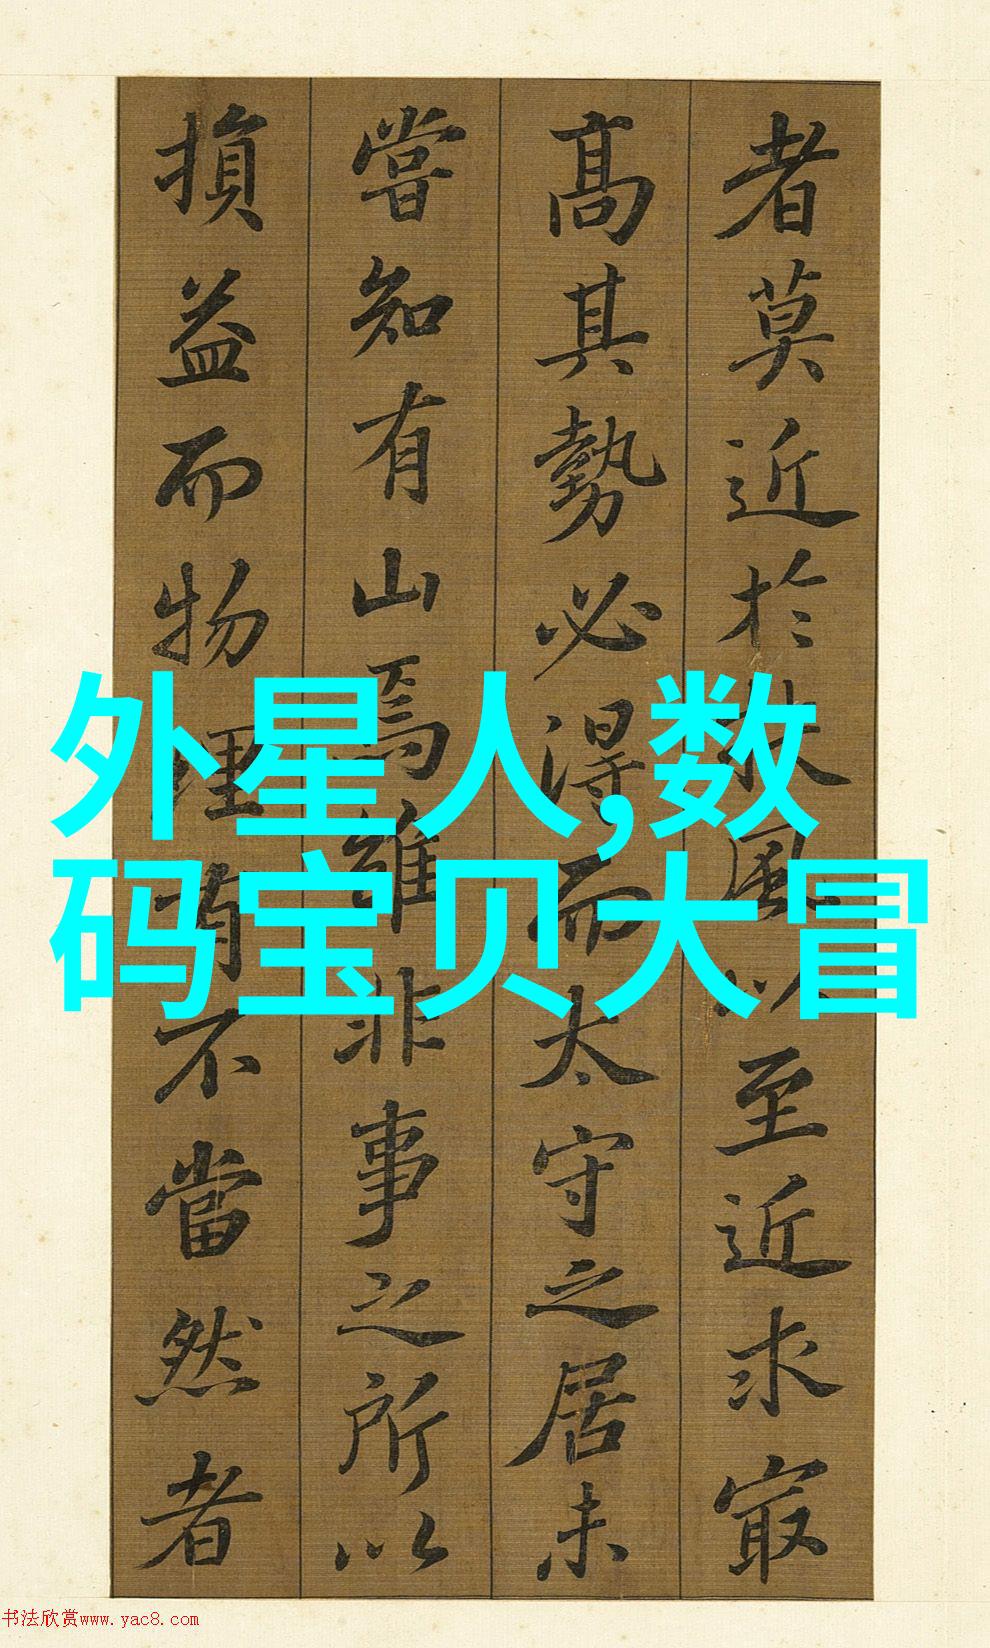 者莫近於扶風以至近求㝡
高其勢必得而太守之居未
嘗知有山焉雖非事之所以
損益而物理有不當然者
外星人,数
码宝贝大冒
书法欣赏www.yac8.com